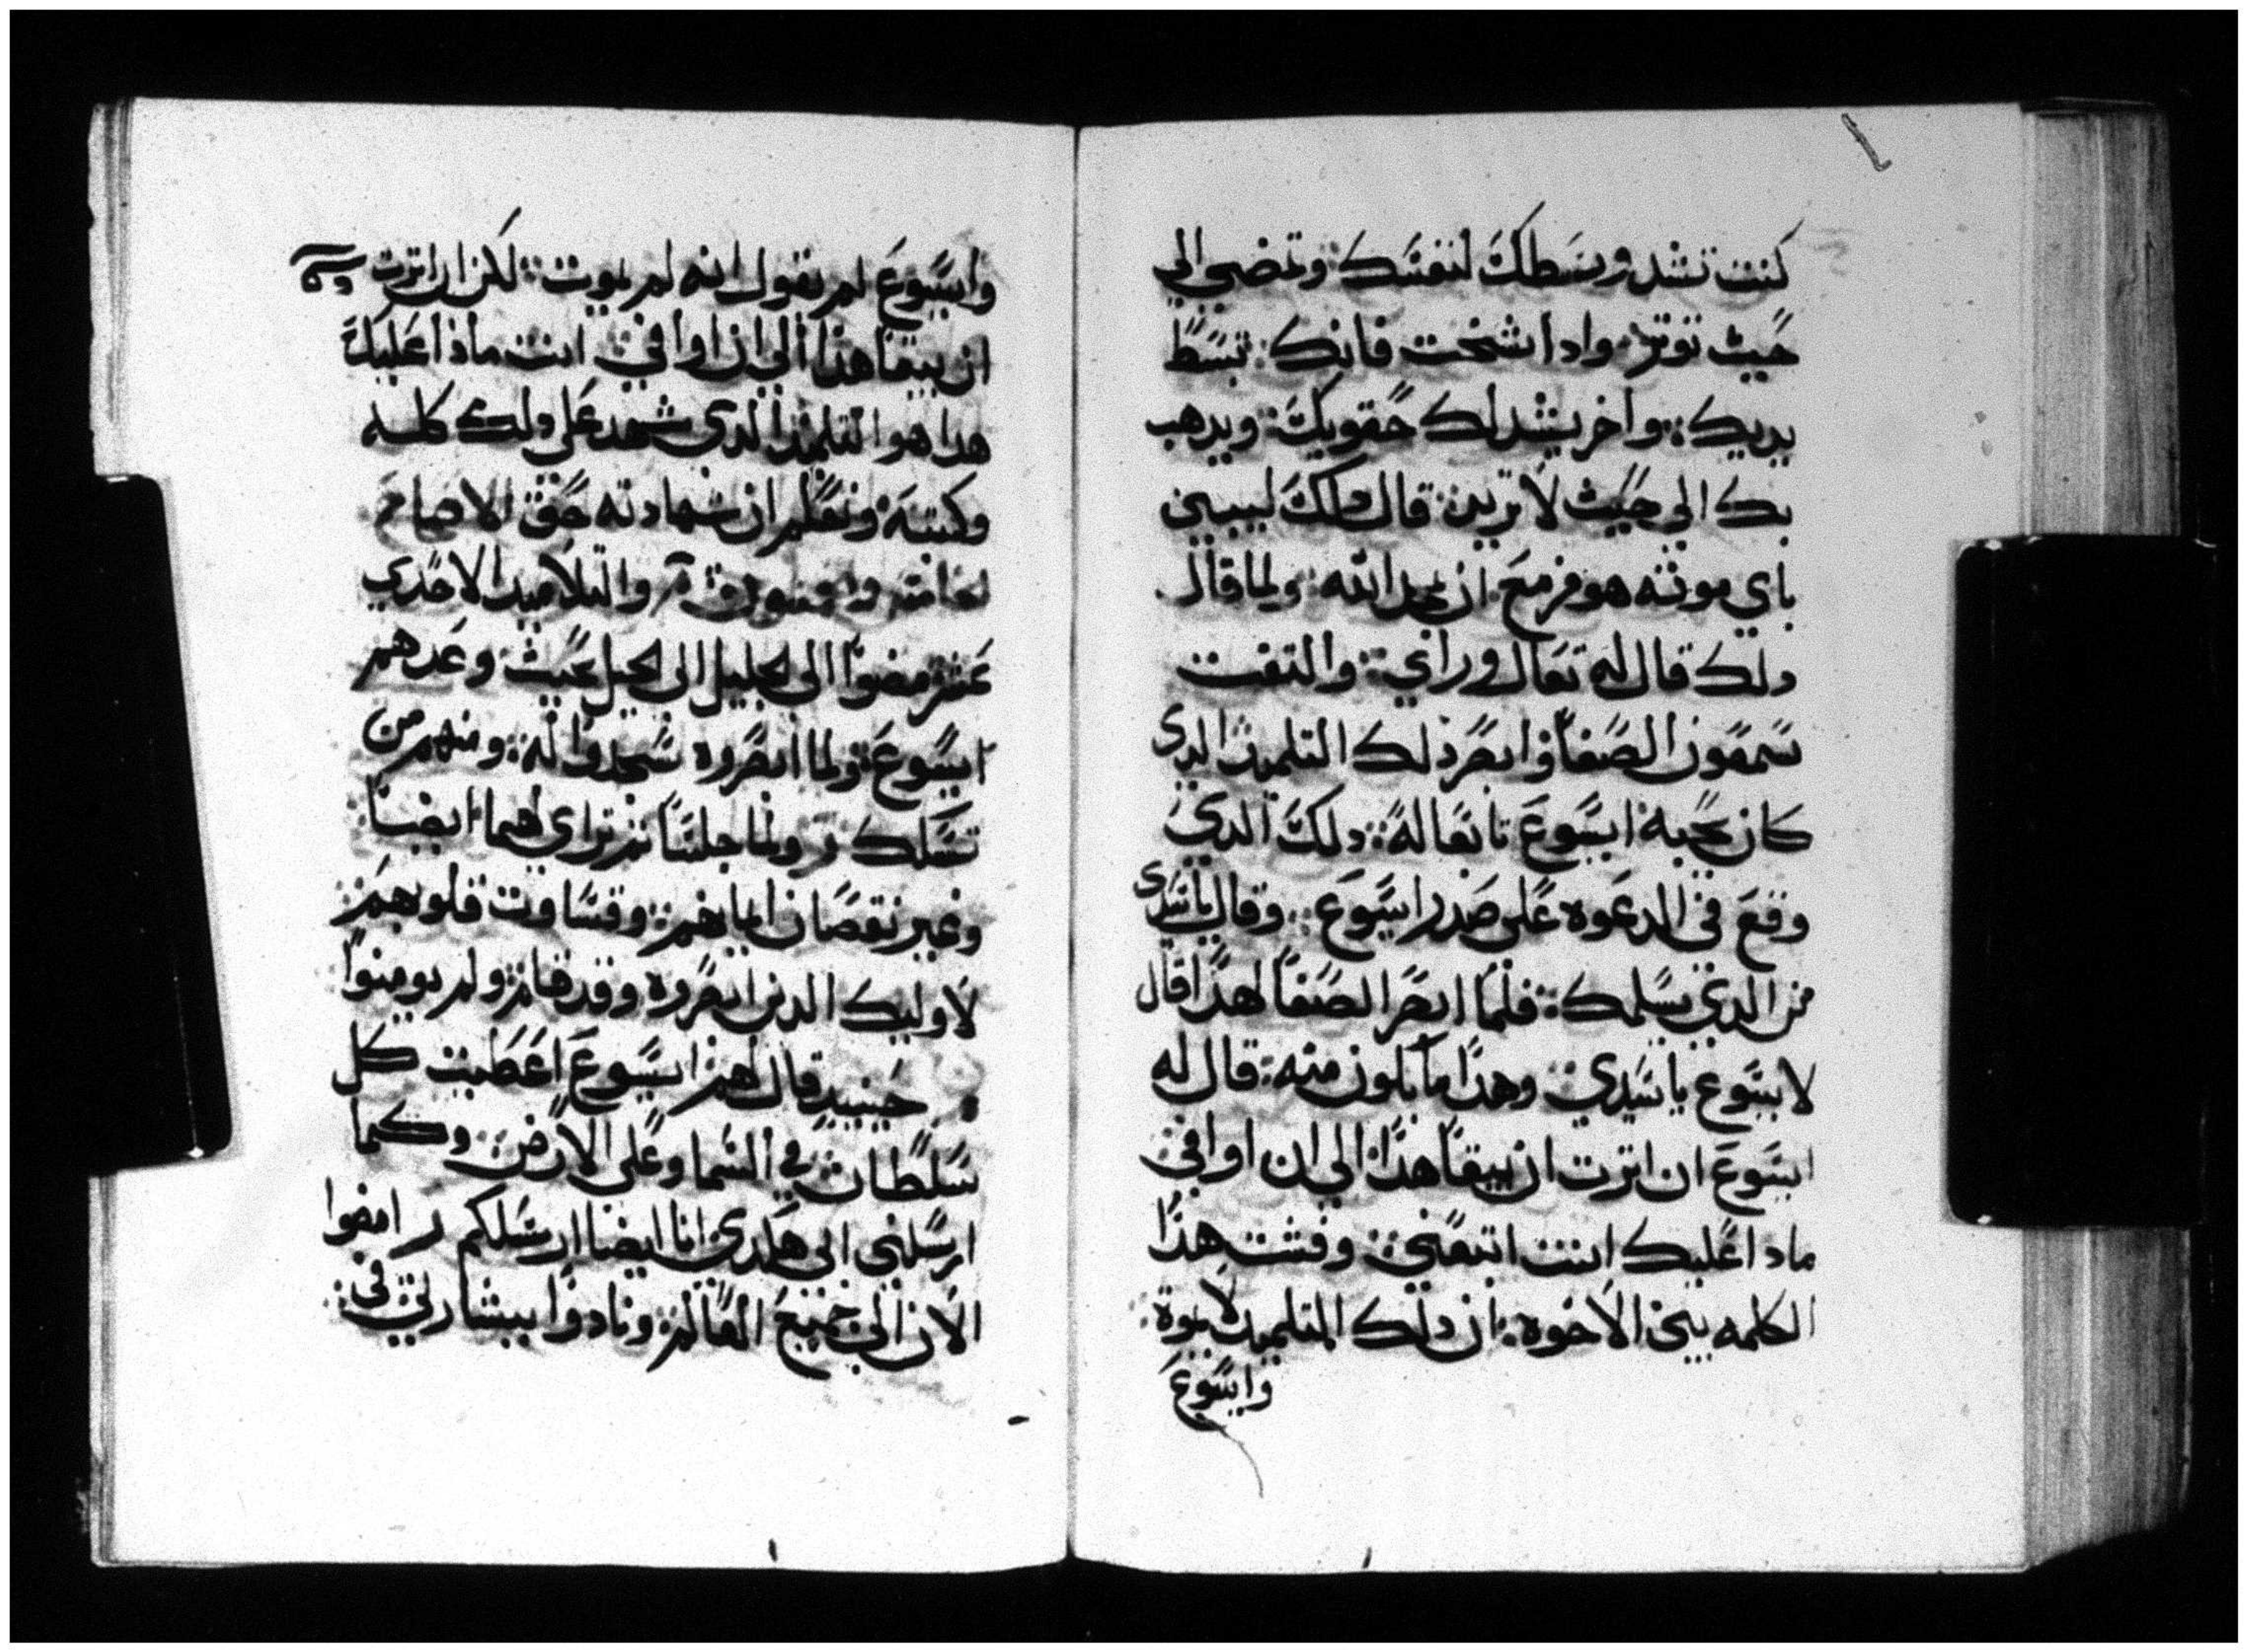 كنت تشد وسطك لنفسك وتمضي الي
حيث توتر واداشخت فانك تبسط
يديك واخر يشد لك حقويك ويدهب
بك الي حيث لا تريد قال دلك ليبين
باي موته هو مزمع ان يمجد الله ولما قال
دلك قال له تعال وراي والتفت
سمعون الصفا وابصر دلك التلميد الدي
كان يحبه ايسوع تابعا له دلك الدي
وقع في الدعوه علي صدر ايسوع وقال ياسيدي
من الدي يسلمك فلما ابصر الصفا لهدا قال
لايسوع ياسيدي وهدا ما يكون منه قال له
ايسوع ان اترت ان يبقا هدا الي ان اوافي
مادا عليك انت اتبعني وفشت هدا
الكلمه بين الاخوه ان دلك التلميد لا يموت
وايسوع
وايسوع لم يقول انه لم يموت لكن ان اترت
ان يبقا هدا الي ان اوافي انت مادا عليك
هدا هو التلميد الدي شهد علي دلك كله
وكتبه ونعلم ان شهادته حق الاصاح
والتلاميد الاحدي
عشر مضوا الي الجليل الي الجبل بحيث وعدهم
ايسوع ولما ابصروه سجدوا له ومنهم من
تشكك ولما جلسا تراي لهما ايضا
وعير نقصان ايمانهم وقساوت قلوبهم
لاوليك الدين ابصروه وقد قام ولم يومنوا
حينيد قال لهم ايسوع اعطيت كل
سلطان في السما وعلي الارض وكما
ارسلني ابي هكدي انا ايضا ارسلكم امضوا
الان الي جميع العالم ونادوا ببشارتي في